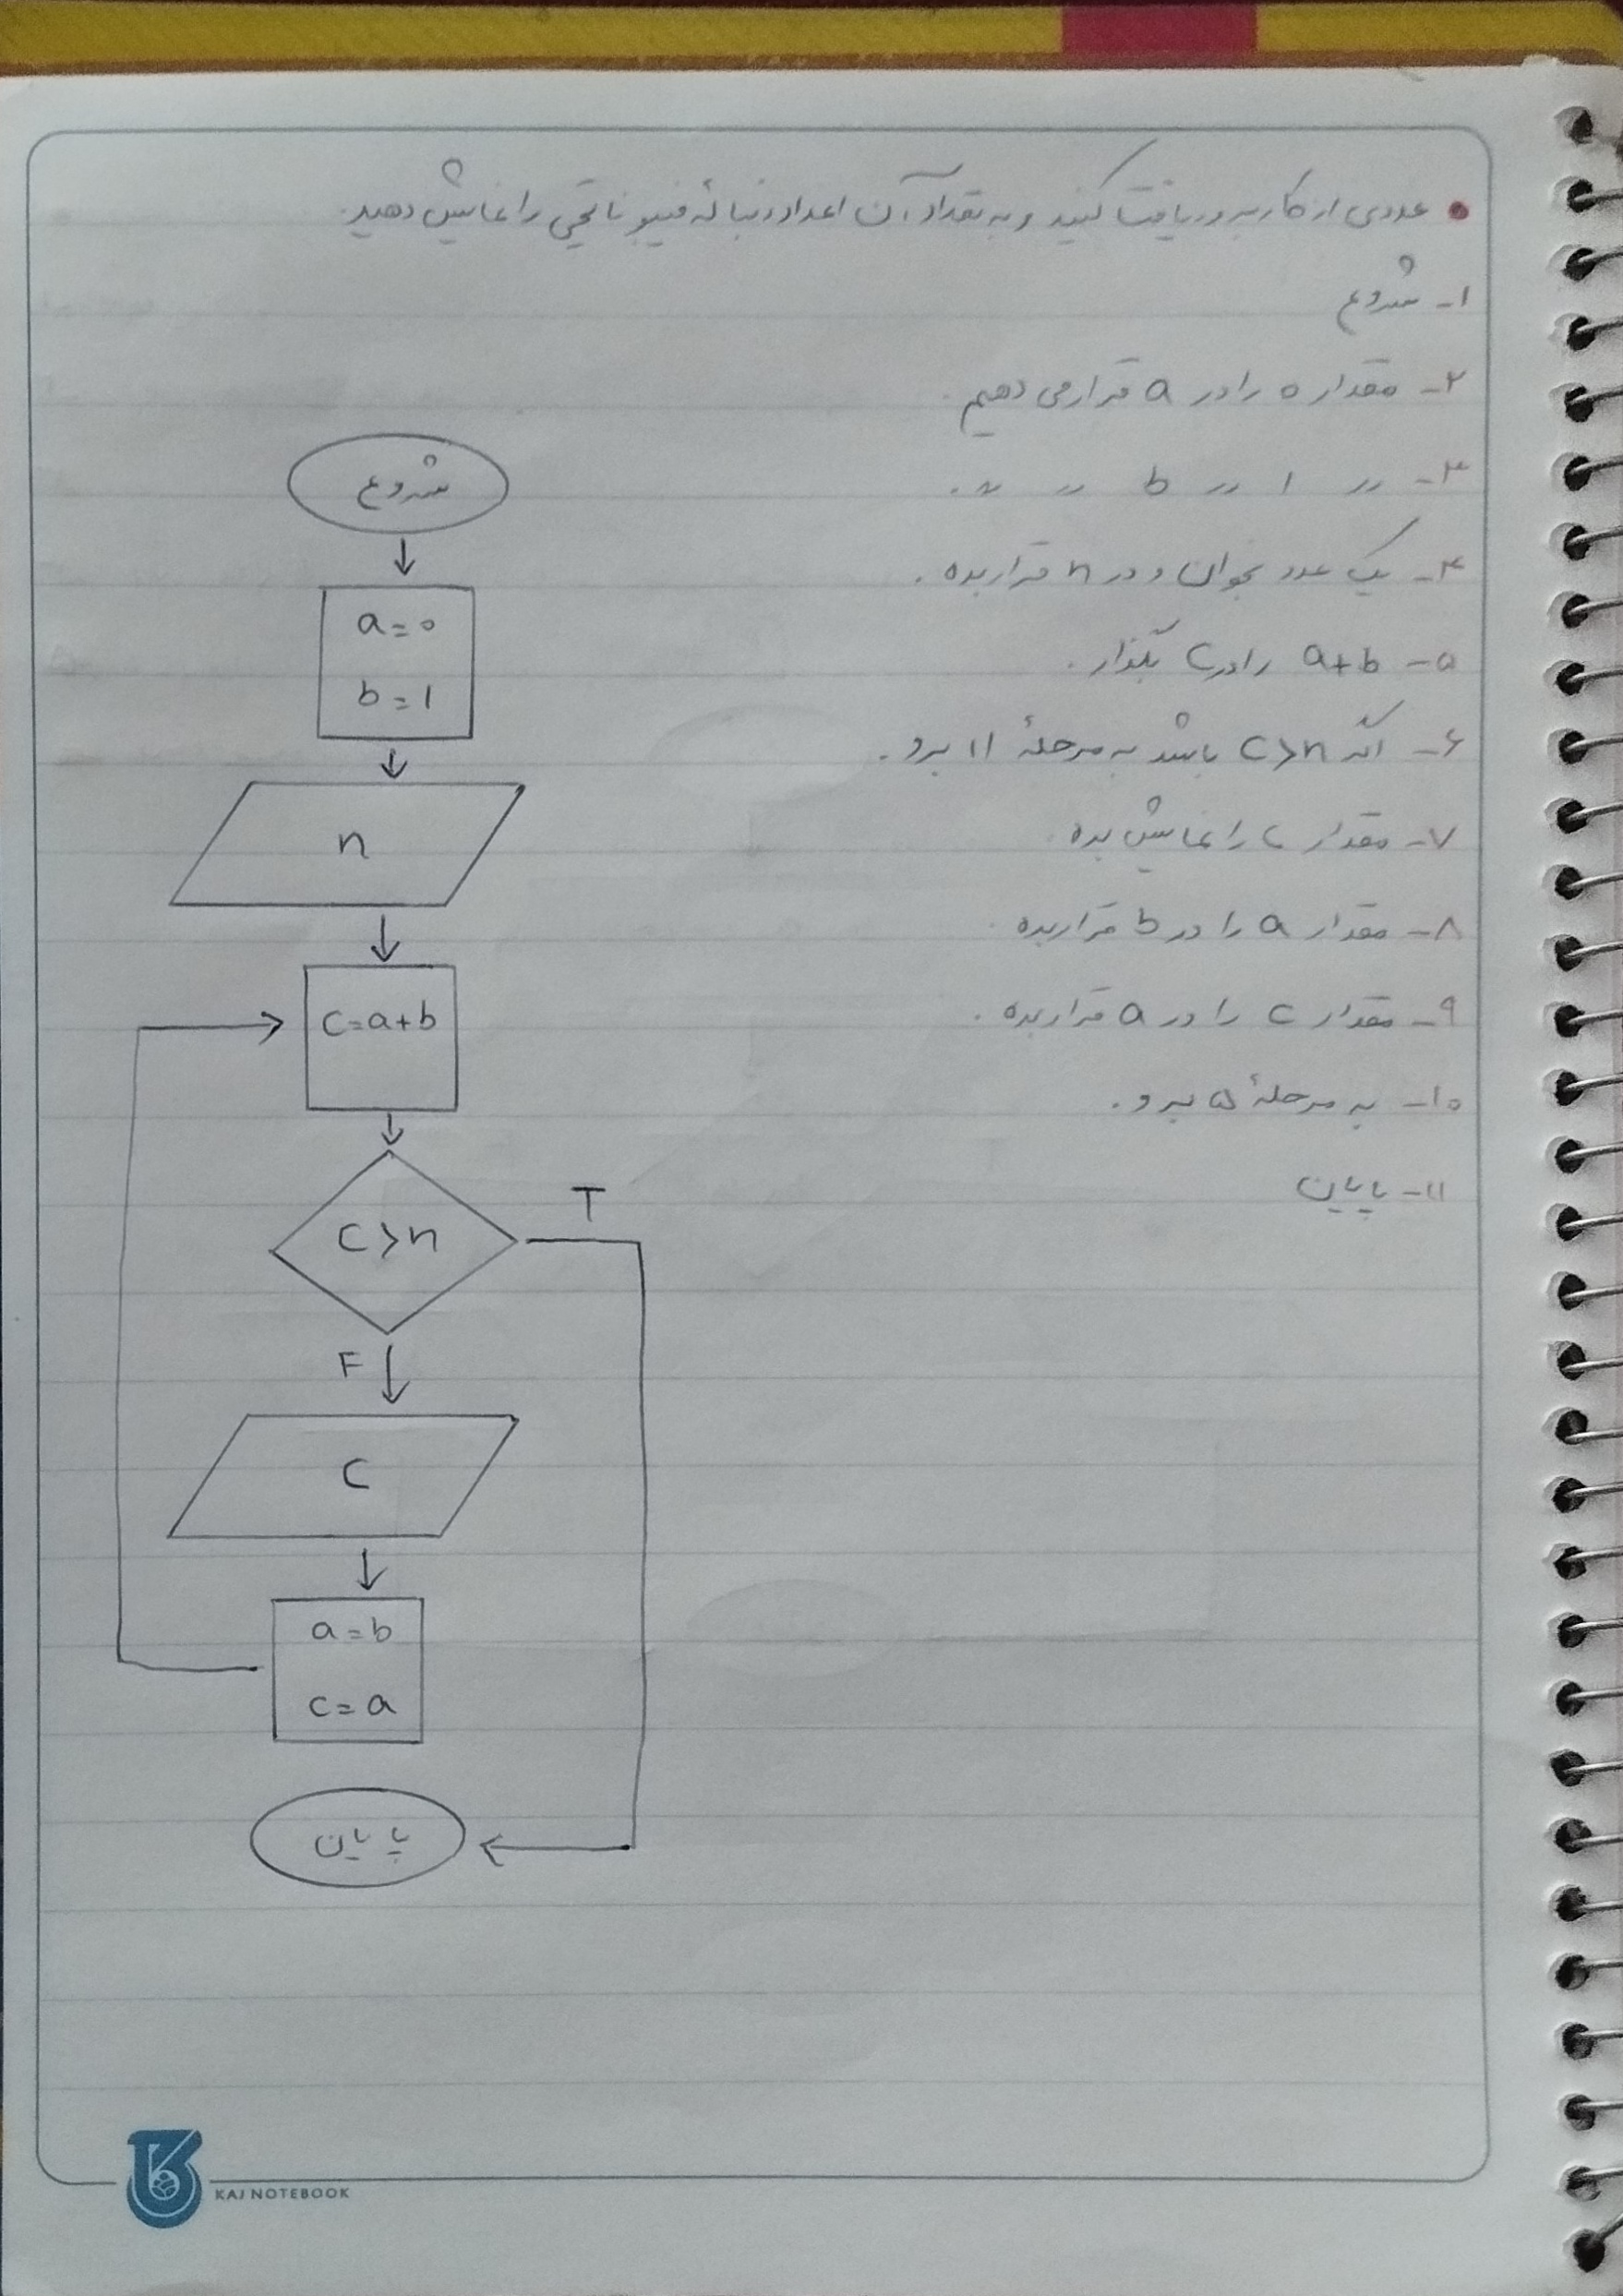 • عددی از کاربر دریافت کنید و به تعداد آن اعداد دنباله فیبوناچی را نمایش دهید.
۱- شروع
۲- مقدار ۰ را در a قرار می دهیم.
۳- 〃 ۱ 〃 b 〃 〃.
۴- یک عدد بخوان و در n قرار بده.
۵- a+b را در c بگذار.
۶- اگر c>n باشد به مرحلهٔ ۱۱ برو.
۷- مقدار c را نمایش بده.
۸- مقدار a را در b قرار بده.
۹- مقدار c را در a قرار بده.
۱۰- به مرحلهٔ ۵ برو.
۱۱- پایان
شروع
a=۰
b=۱
n
c=a+b
c>n
T
F
c
a=b
c=a
پایان
KAJ NOTEBOOK